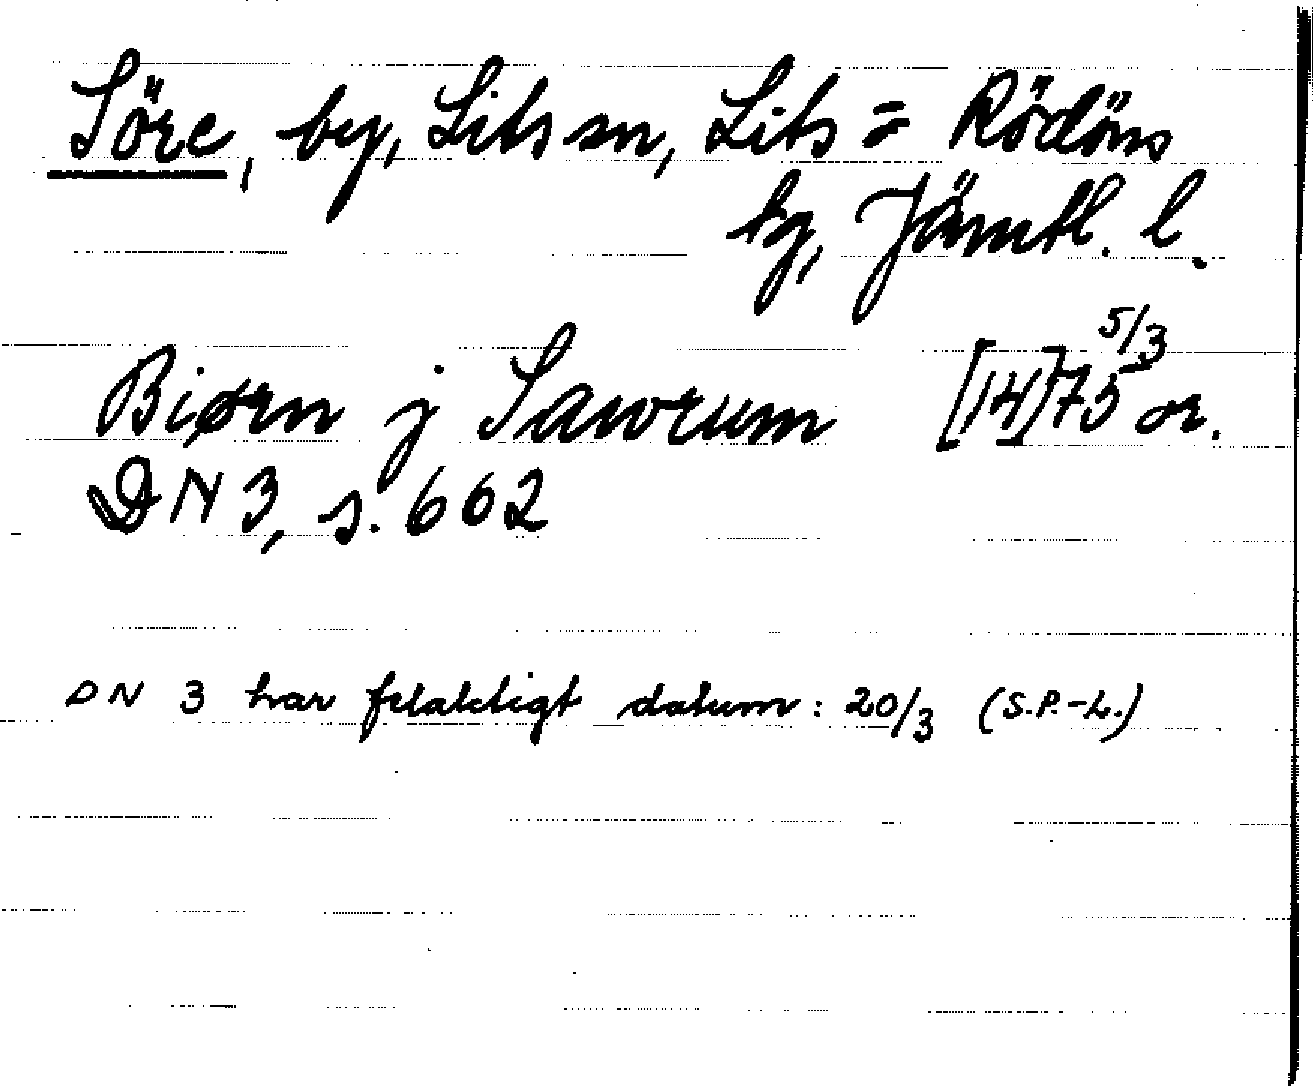 Söre, by, Lits sn, Lits = Rödöns
tg, Jämtl. l.
Biørn j Sawrum [14]75 5/3 or.
DN 3, s. 662
DN 3 har felaktigt datum: 20/3 (S.P.-L.)